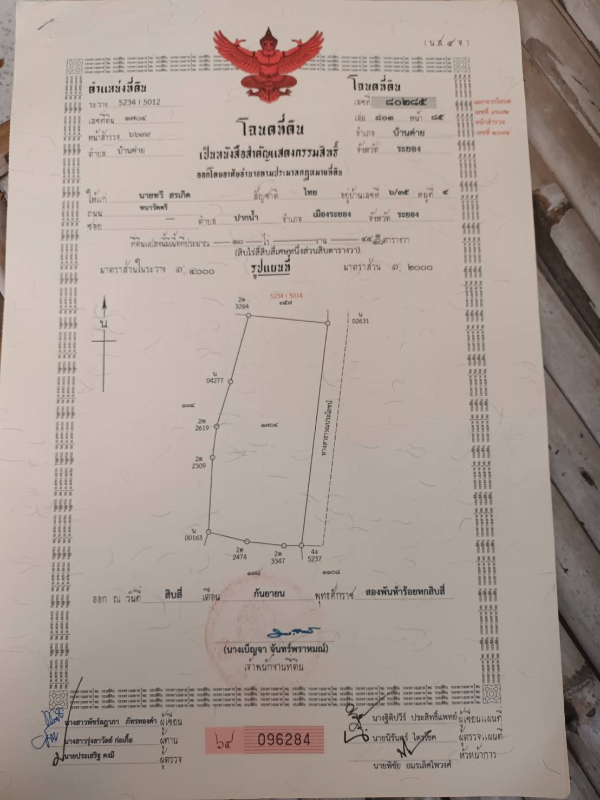 (น.ส. ๔ จ.)
ตำแหน่งที่ดิน
ระวาง 5234 I 5012
เลขที่ดิน ๑๗๐๔
หน้าสำรวจ
ตำบล บ้านค่าย
โฉนดที่ดิน
เลขที่ ๘๐๒๘๕
เล่ม ๘๐๓ หน้า ๘๕
อำเภอ บ้านค่าย
จังหวัด ระยอง
โฉนดที่ดิน
เป็นหนังสือสำคัญแสดงกรรมสิทธิ์
ออกโดยอาศัยอำนาจตามประมวลกฎหมายที่ดิน
ให้แก่ นายทวี สรเกิด สัญชาติ ไทย อยู่บ้านเลขที่ ๖/๓๕ หมู่ที่ ๔
ถนน
ซอย — ตำบล ปากน้ำ อำเภอ เมืองระยอง จังหวัด ระยอง
ที่ดินแปลงนี้มีเนื้อที่ประมาณ ๑๐ ไร่ — งาน ตารางวา
(สิบไร่สี่สิบสี่เศษหนึ่งส่วนสิบตารางวา)
มาตราส่วนในระวาง ๑: ๔๐๐๐ รูปแผนที่ มาตราส่วน ๑: ๒๐๐๐
5234 I 5014
๑๓๕๗
2ต
3264
น
02631
น
น
04277
2ต
2619
2ต
2309
๑๗๐๔
ทางสาธารณประโยชน์
น
00163
2ต
2474
2ต
3347
4ง
5237
๑๑๐๘
ออก ณ วันที่ สิบสี่ เดือน กันยายน พุทธศักราช สองพันห้าร้อยหกสิบสี่
(นางเบ็ญจา จันทร์พราหมณ์)
เจ้าพนักงานที่ดิน
นางสาวพัชร์ฎาภา ภัทรทองคำ ผู้เขียน
นางสาวรุ่งสาวัลย์ ก่อเกื้อ ผู้ทาน
นายประเสริฐ คงมี ผู้ตรวจ
๖๔ 096284
นางฐิติปวีร์ ประสิทธิ์แพทย์ ผู้เขียนแผนที่
นายนิรันดร์ ไตรรัค ผู้ตรวจแผนที่
นายพิชัย อมรเลิศไพวงศ์ หัวหน้าการ